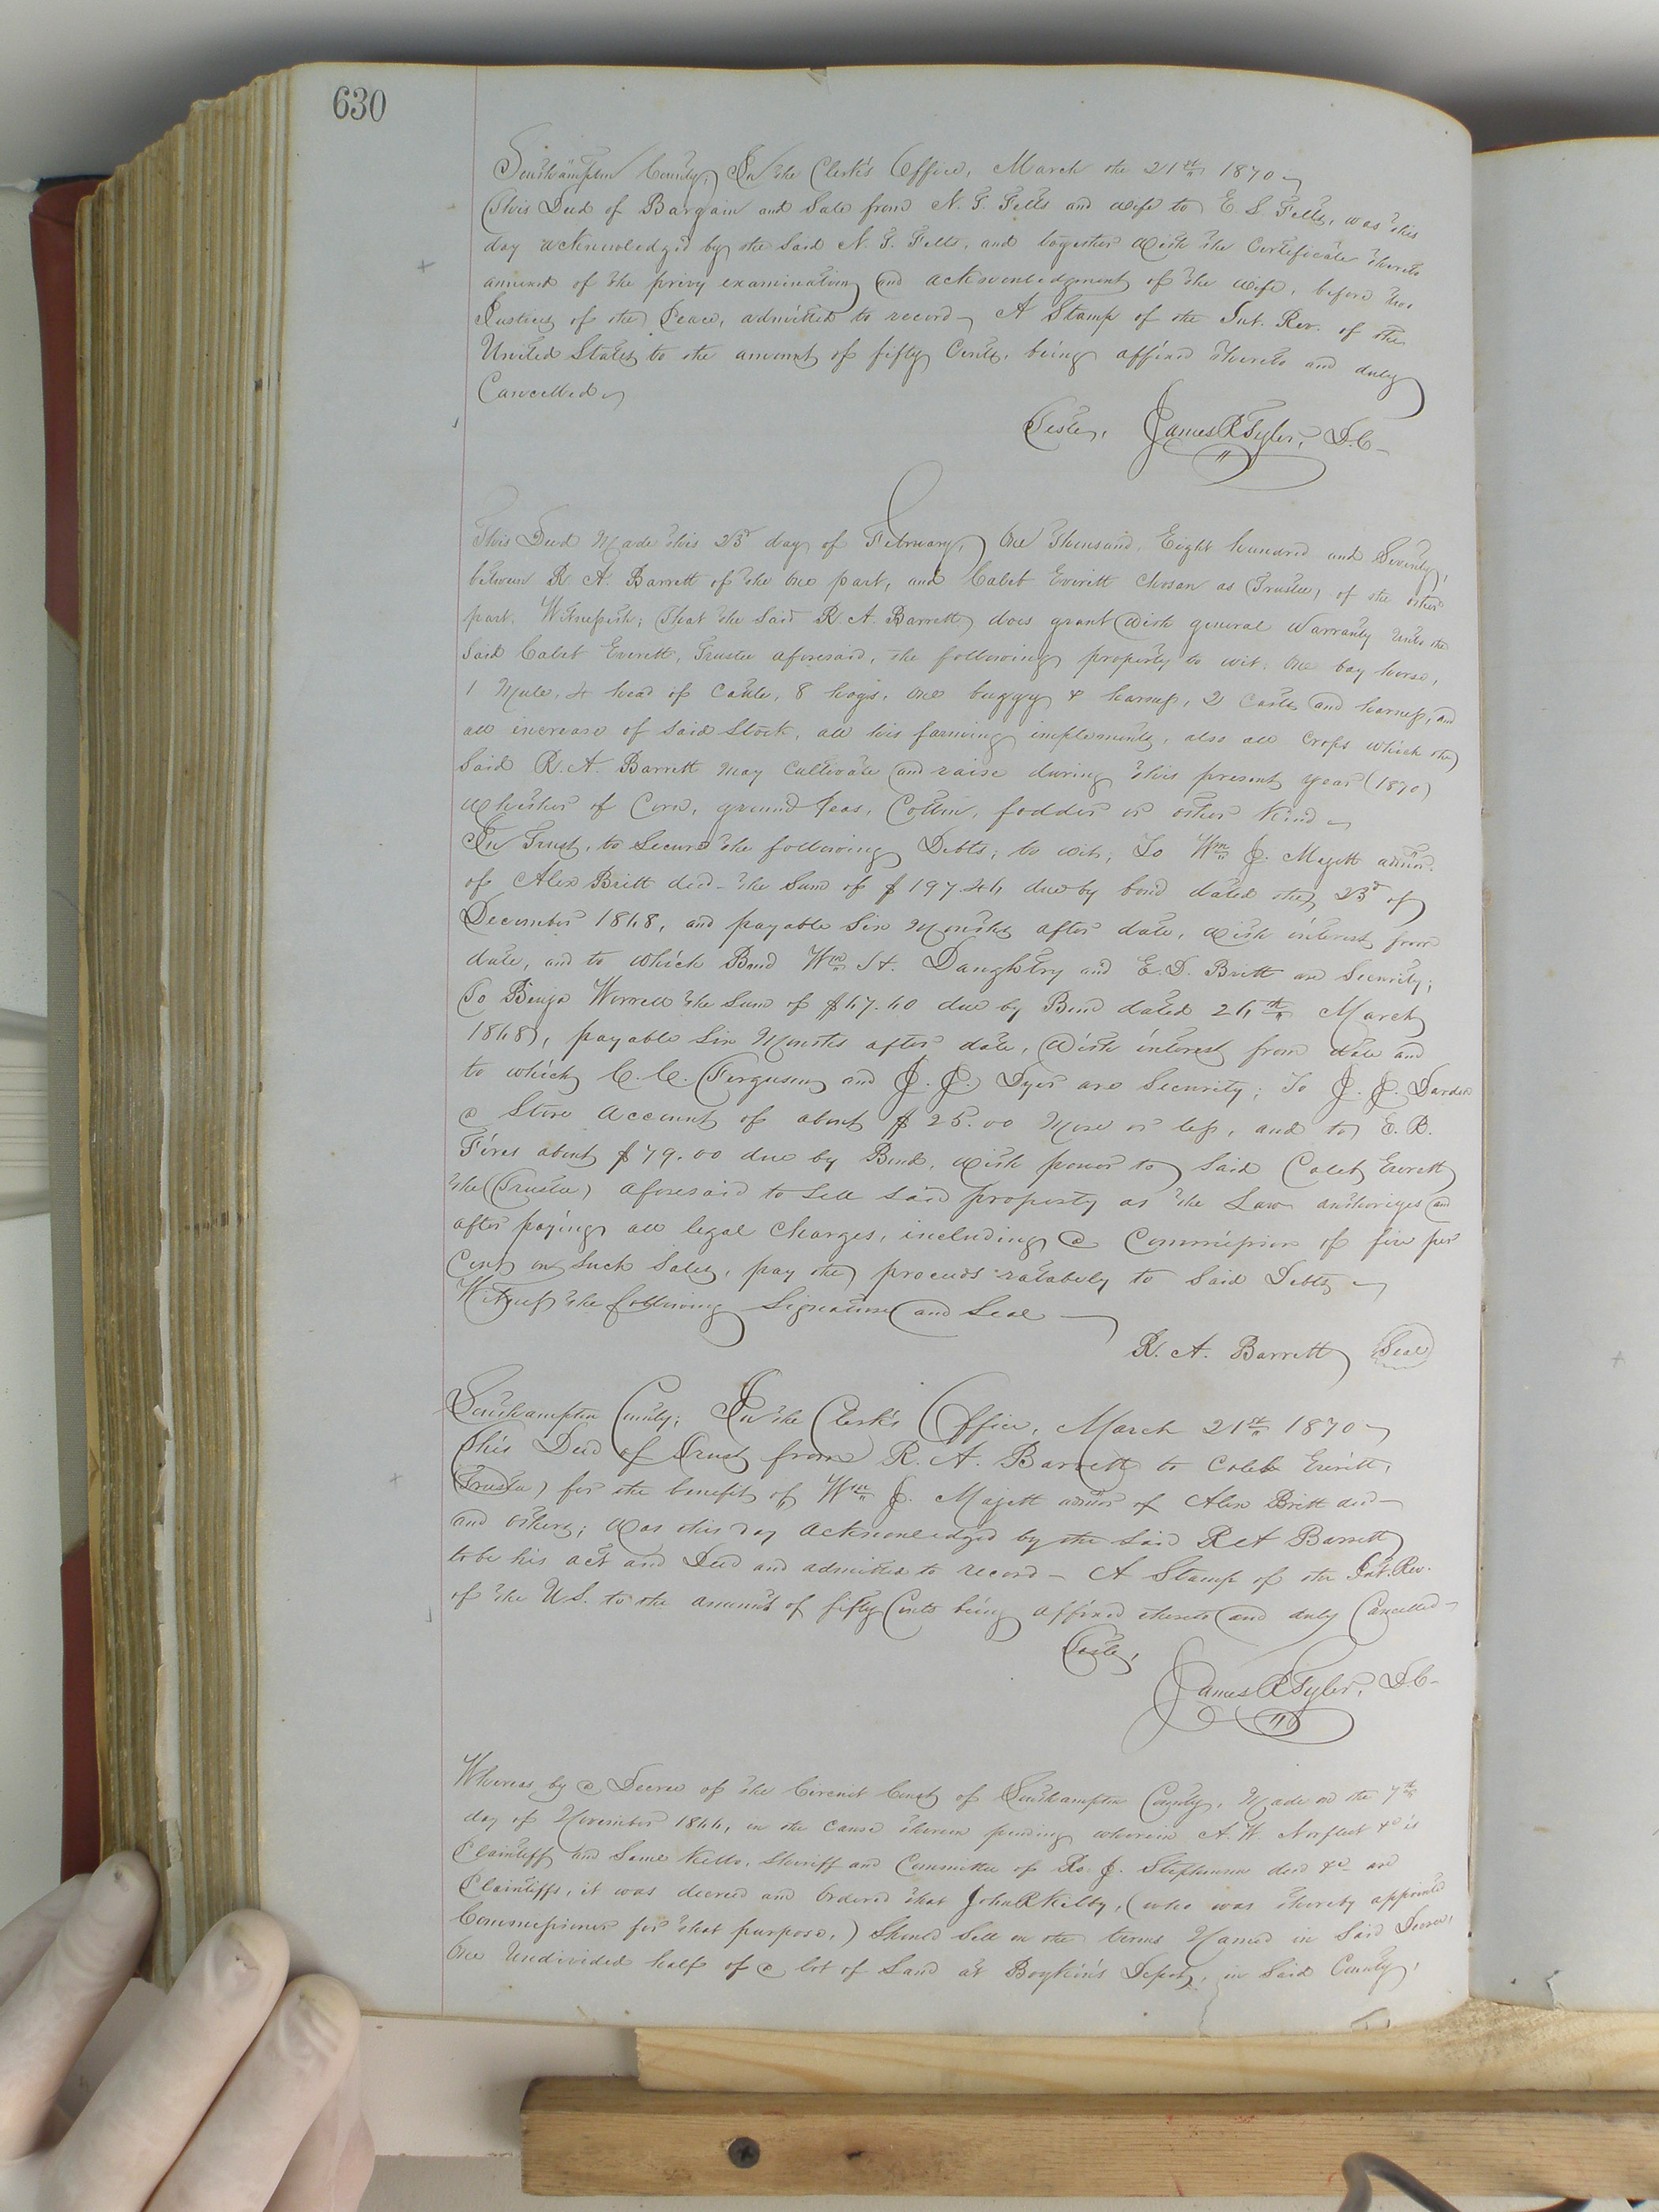 630
Southampton County; In the Clerk's Office, March the 21st 1870
This Deed of Bargain and Sale from N. T. Felts and wife to E. S. Felts, was this
day acknowledged by the said N. T. Felts, and together with the Certificate thereto
annexed of the privy examination and acknowledgment of the wife, before two
Justices of the Peace, admitted to record. A Stamp of the Int. Rev. of the
United States to the amount of fifty Cents, being affixed thereto and duly
Cancelled
Teste, James R Tyler, D.C.
This Deed Made this 23d day of February, One Thousand, Eight hundred and Seventy,
between R. A. Barrett of the one part, and Caleb Everett Chosen as Trustee, of the other
part, Witnesseth; That the said R. A. Barrett does grant with general Warranty unto the
said Caleb Everett, Trustee aforesaid, the following property to wit: One bay horse,
1 Mule, 4 head of Cattle, 8 hogs, one buggy & harness, 2 Carts and harness, and
all increase of said Stock, all his farming implements, also all Crops which the
said R. A. Barrett may Cultivate and raise during this present year (1870)
Whether of Corn, ground Peas, Cotton, fodder or other kind
In Trust, to Secure the following Debts; to wit; To Wm J. Majett admor.
of Alex Britt decd the Sum of $197.46 due by bond dated the 23d of
December 1868, and payable Six Months after date, with interest from
date, and to which Bond Wm H. Daughtry and E. D. Britt are Security;
To Benja Worrell the Sum of $67.60 due by Bond dated 26th March
1868, payable Six Months after date, with interest from date and
to which C. C. Ferguson and J. J. Dyer are Security; To J. J. Darden
a Store Account of about $25.00 More or less, and to E. B.
about $79.00 due by Bond, with power to said Caleb Everett
the (Trustee) aforesaid to sell said property as the Law authorizes and
after paying all legal Charges, including a Commission of five per
Cent on such Sales, pay the proceeds ratably to said Debts
Witness the following Signature and Seal
R. A. Barrett Seal
Southampton County; In the Clerk's Office, March 21st 1870
This Deed of Trust from R. A. Barrett to Caleb Everett,
Trustee) for the benefit of Wm J. Majett admor of Alex Britt decd
and others; was this day acknowledged by the said R A Barrett
to be his act and Deed and admitted to record. A Stamp of the Int. Rev.
of the U.S. to the amount of fifty Cents being affixed thereto and duly Cancelled
Teste,
James R Tyler, D.C.
Whereas, by a Decree of the Circuit Court of Southampton County, Made on the 7th
day of November 1866, in the cause therein pending wherein A. W. Norfleet &c is
Plaintiff and Kello, Sheriff and Committee of Ro. J. Stephenson decd &c are
Plaintiffs, it was decreed and Ordered that John R Kilby, (who was thereby appointed
Commissioner for that purpose,) Should Sell on the terms Named in said Decree,
One Undivided half of a lot of Land at Boykin's Depot, in said County,